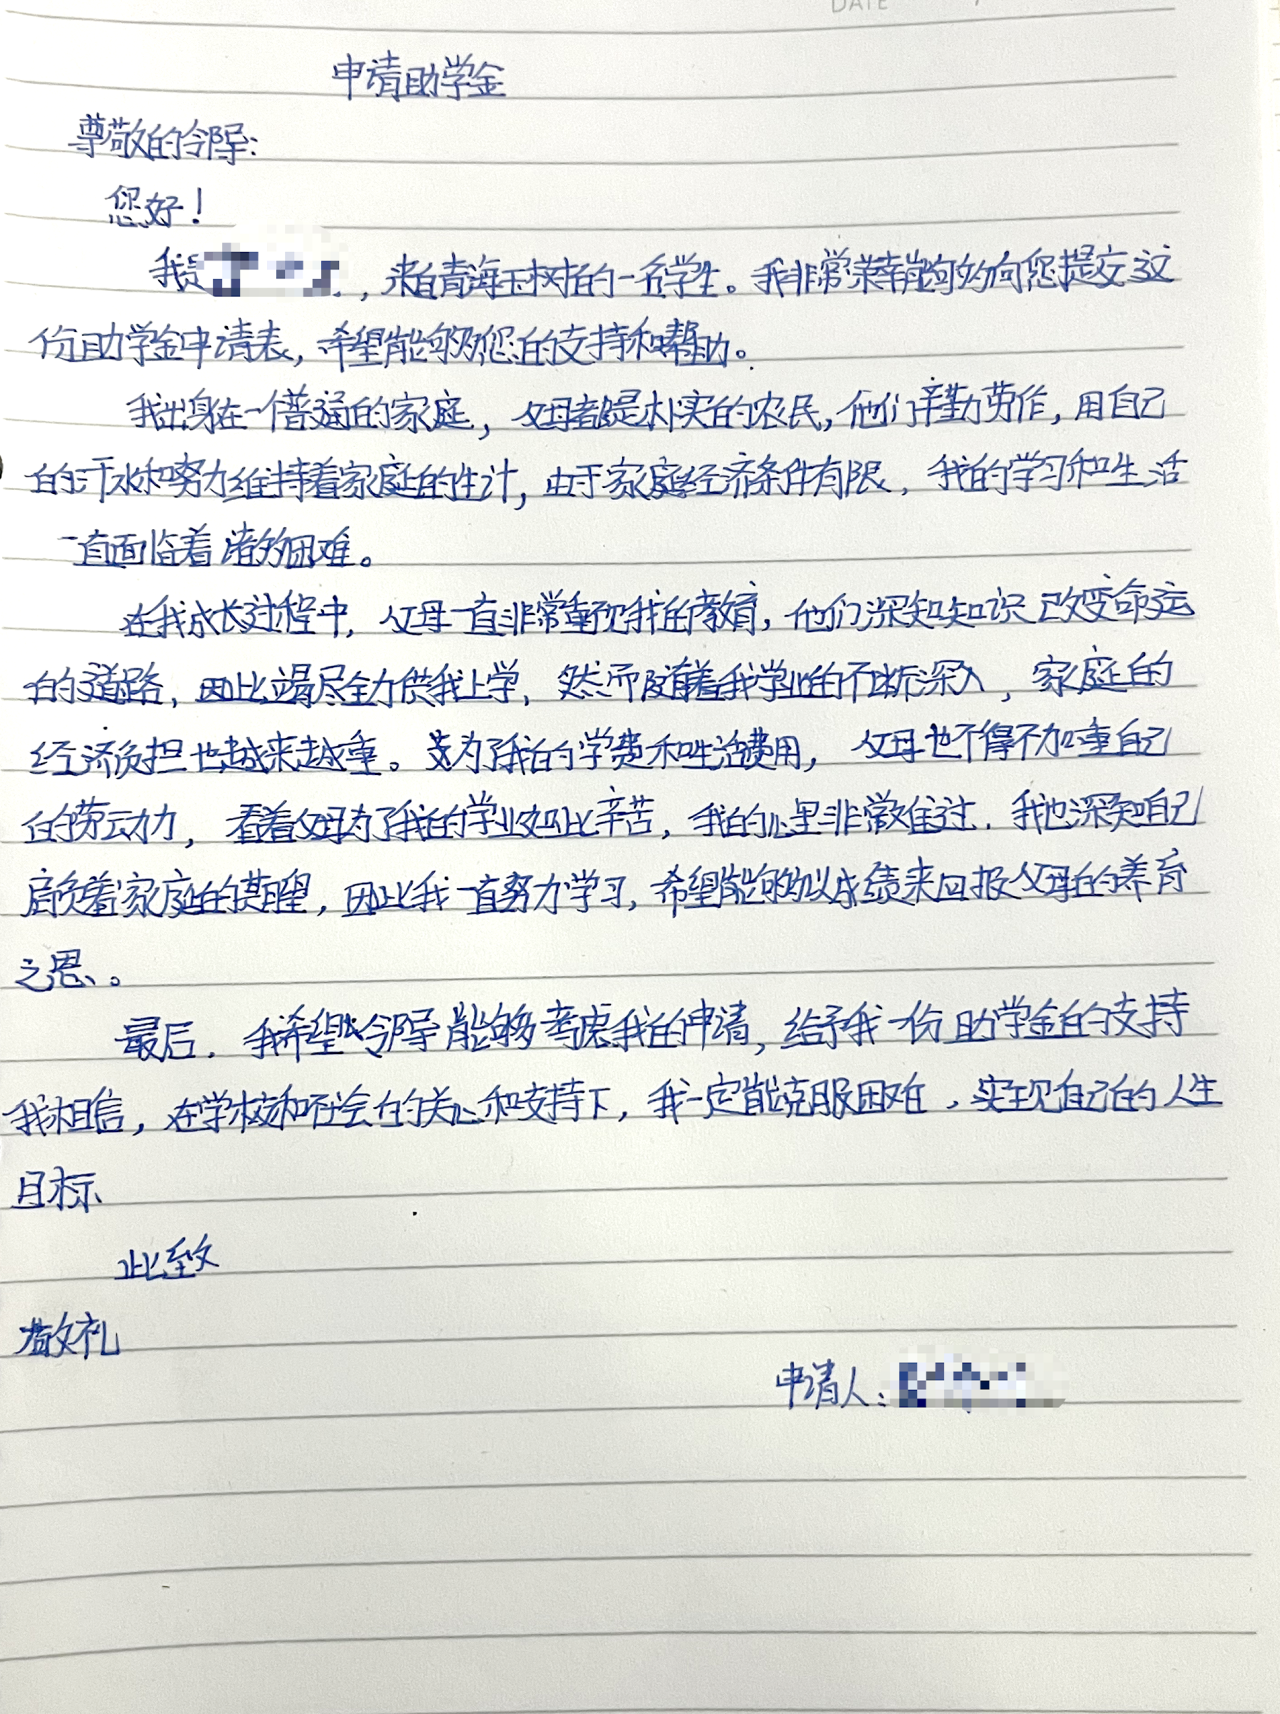 DATE
申请助学金
尊敬的领导:
您好!
我是，来自青海玉树的一名学生。我非常荣幸能够向您提交这
份助学金申请表，希望能够得您的支持和帮助。
我出身在一个普通的家庭，父母都是朴实的农民，他们辛勤劳作，用自己
的汗水和努力维持着家庭的生计，由于家庭经济条件有限，我的学习和生活
一直面临着诸多困难。
在我成长过程中，父母一直非常重视我的教育，他们深知知识改变命运
的道路，因此竭尽全力供我上学，然而随着我学业的不断深入，家庭的
经济负担也越来越重。为了我的学费和生活费用，父母也不得不加重自己
的劳动力，看着父母为了我的学业如此辛苦，我的心里非常难过，我也深知自己
肩负着家庭的期望，因此我一直努力学习，希望能够以成绩来回报父母的养育
之恩。
最后，我希望领导能够考虑我的申请，给予我一份助学金的支持
我相信，在学校和社会的关心和支持下，我一定能克服困难，实现自己的人生
目标
此致
敬礼
申请人: